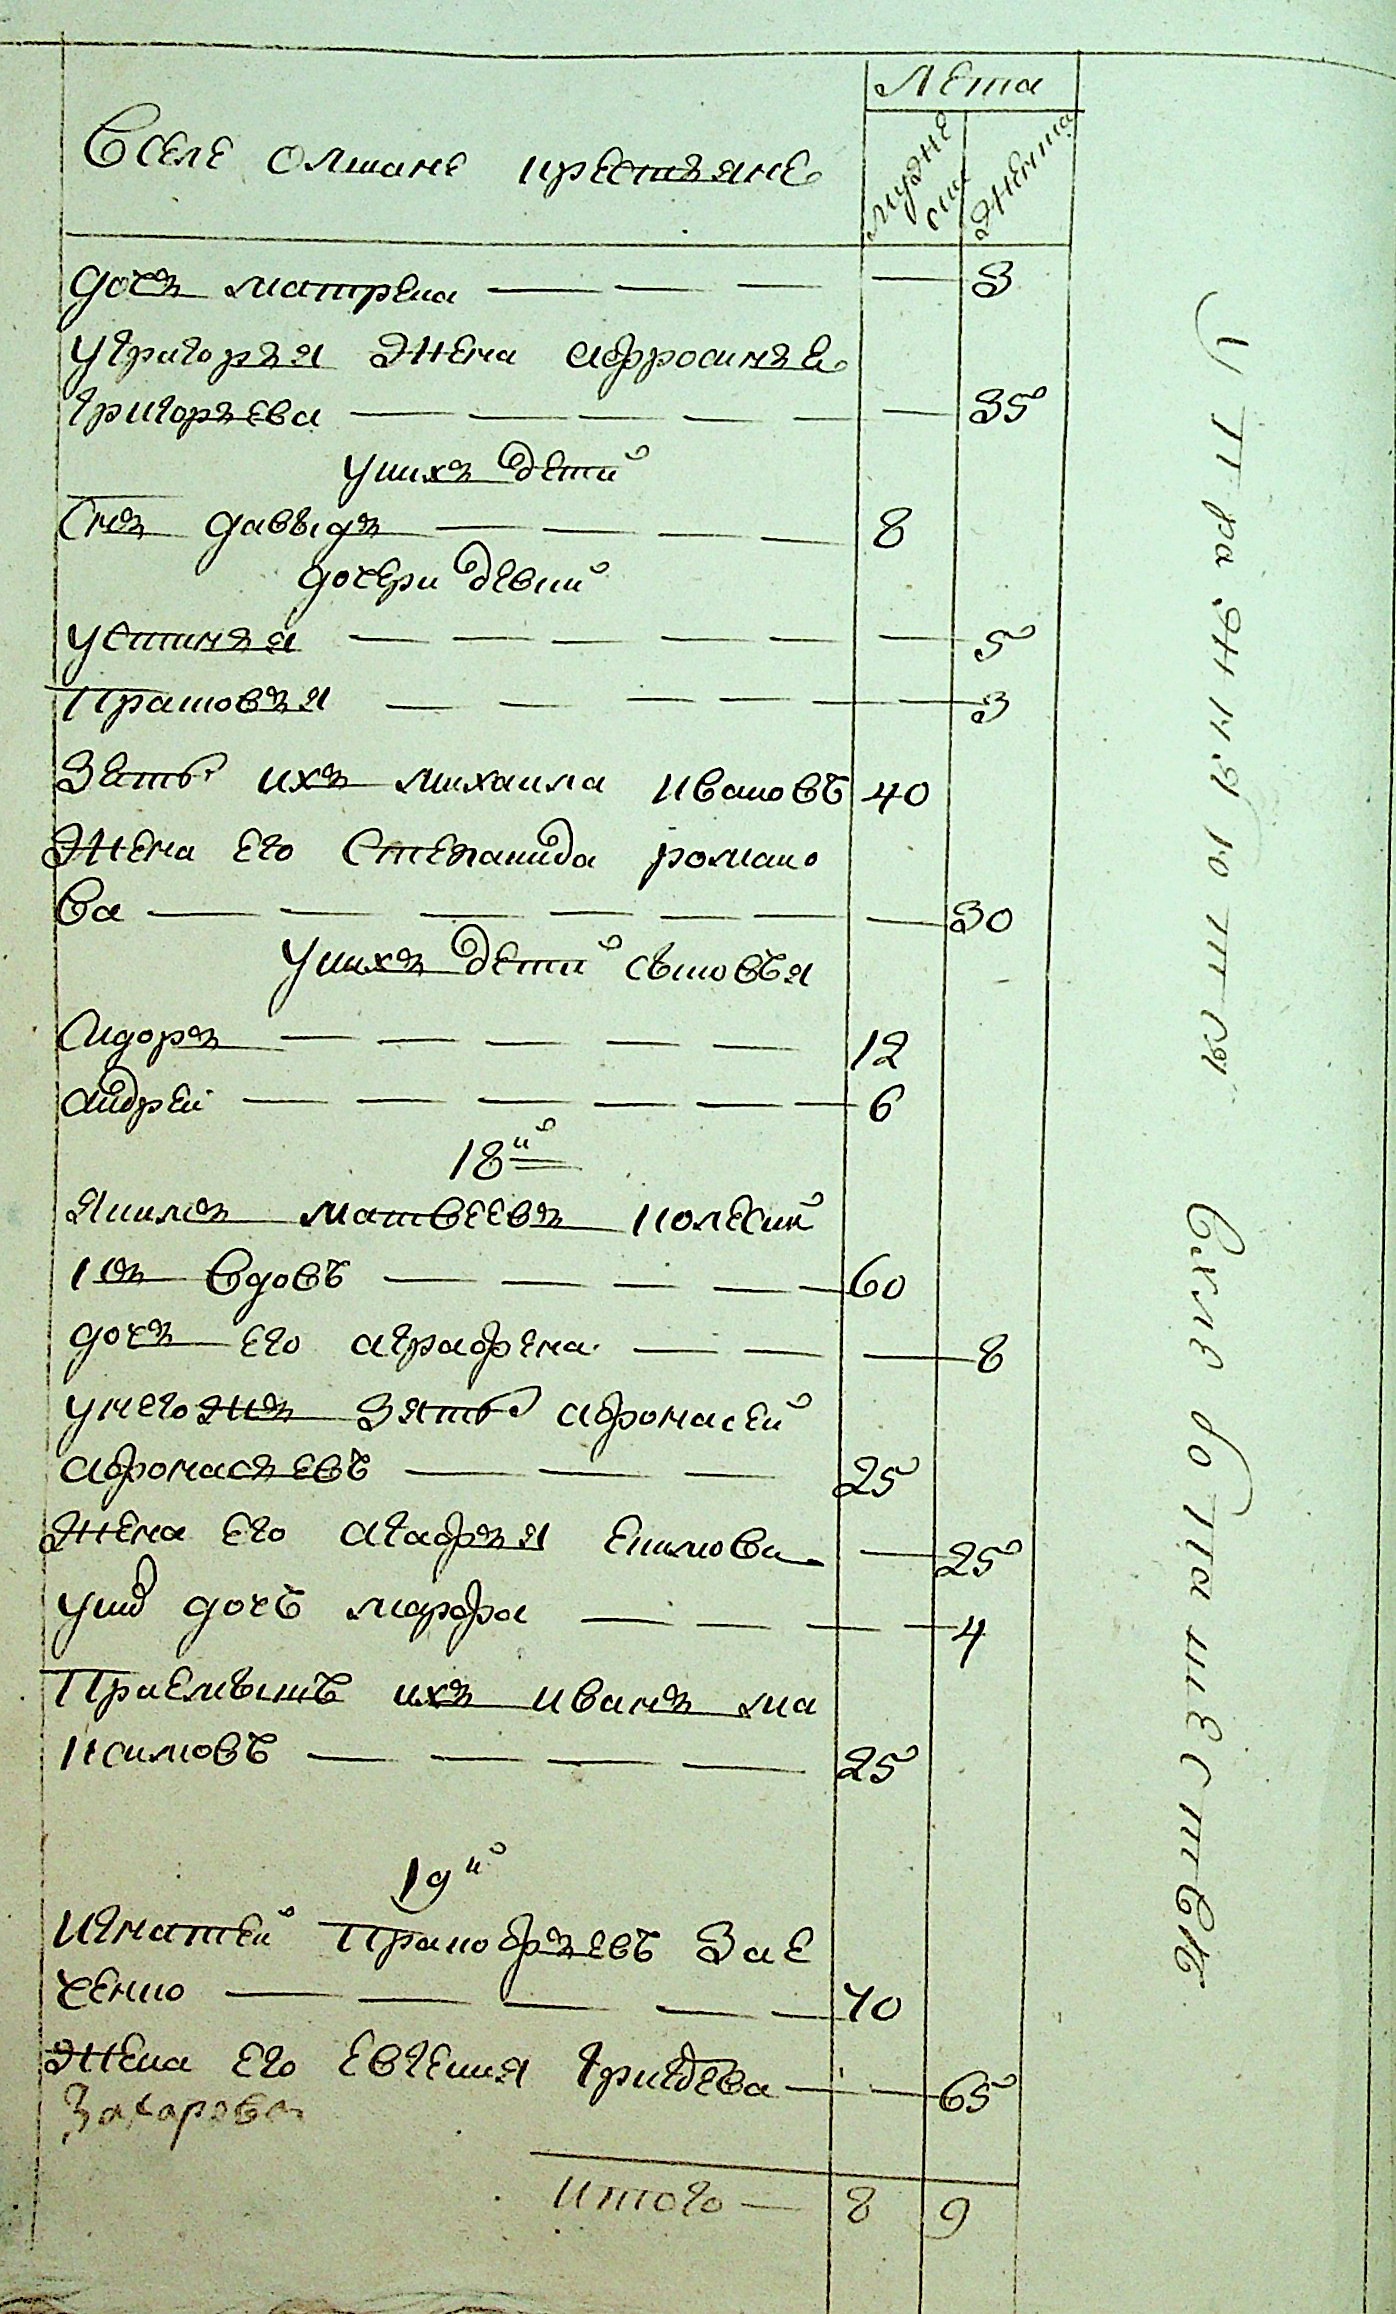 Лета
Вселе олшане крестъяне
Мужеска
Женска
дочъ матрена 3
Угригоръя жена афросинъя
григоръева 35
Унихъ детй
Снъ давыдъ 8
дочери девки
устинъя 5
Прасковъя 3
Зять ихъ михаила ивановъ 40
Жена его Степанида романо
ва 30
Унихъ детй сыновъя
Сидоръ 12
андрей 6
18й
Якимъ матвеевъ
въ вдовъ 60
дочъ его аграфена 8
унегожъ зять афонасей
афонасъевъ 25
Жена его агафъя екимова 25
униꙵ дочъ марфа 4
Приемышъ ихъ иванъ ма
ксимовъ 25
19й
игнатей Пракофъевъ Зае
ченко 70
Жена его евгения григорева 65
Захарова
итого 8 9